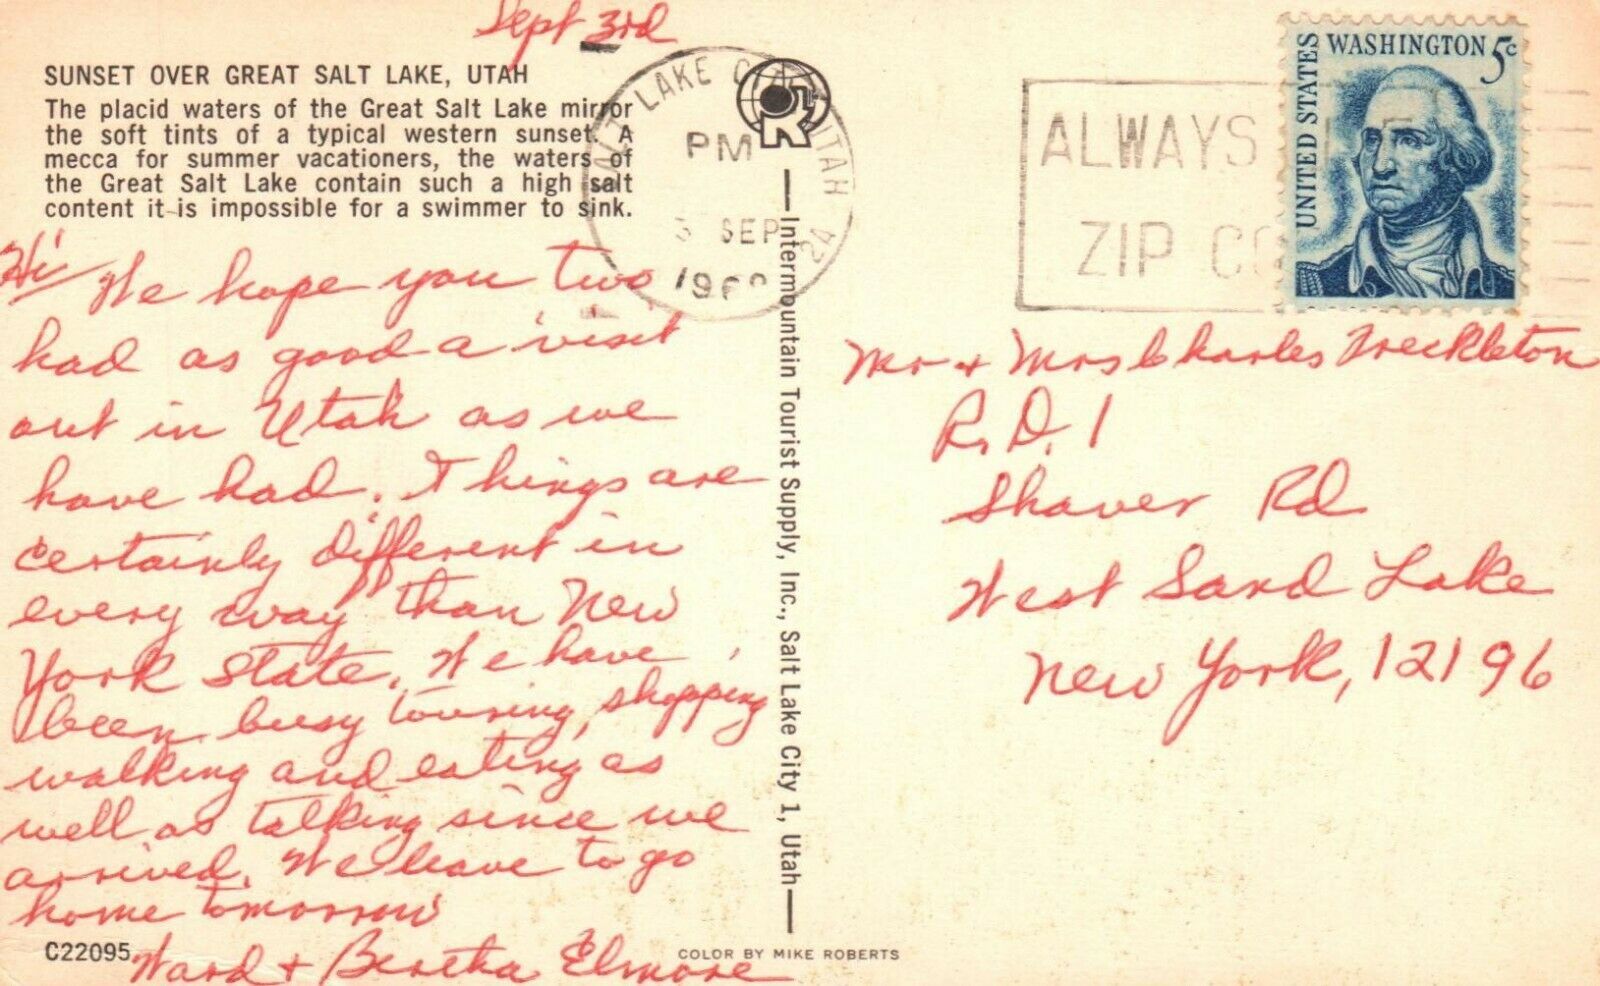 Sept 3rd
SUNSET OVER GREAT SALT LAKE, UTAH
The placid waters of the Great Salt Lake mirror
the soft tints of a typical western sunset. A
mecca for summer vacationers, the waters of
the Great Salt Lake contain such a high salt
content it is impossible for a swimmer to sink.
Hi We hope you two
had as good a visit
out in Utah as we
have had. Things are
certainly different in
every way than New
York State. We have
been busy touring, shopping
walking and eating as
well as talking since we
arrived. We leave to go
home tomorrow
Ward + Bertha Elmore
C22095
SALT LAKE CITY UTAH
PM
SEP
24
ALWAYS
ZIP
UNITED STATES
WASHINGTON 5c
R
Intermountain Tourist Supply, Inc., Salt Lake City 1, Utah
Mr + Mrs Charles Freckleton
R.D. 1
Shaver Rd
West Sand Lake
New York, 12196
COLOR BY MIKE ROBERTS